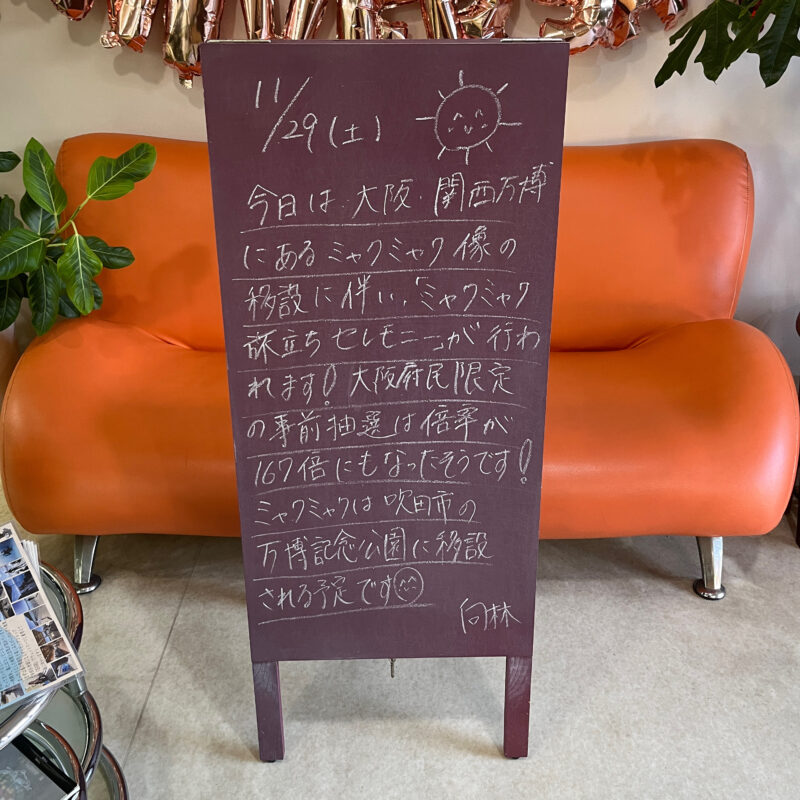 11/29(土)
今日は、大阪・関西万博
にあるミャクミャク像の
移設に伴い、「ミャクミャク
旅立ちセレモニー」が行わ
れます!大阪府民限定
の事前抽選は倍率が
167倍にもなったそうです!
ミャクミャクは吹田市の
万博記念公園に移設
される予定です
向林